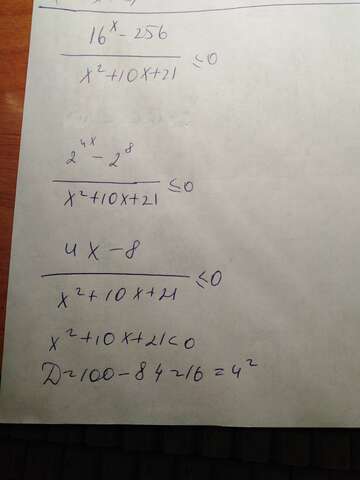 16^x - 256
x² + 10x + 21 ≤ 0
2^4x - 2^8
x² + 10x + 21 ≤ 0
4x - 8
x² + 10x + 21 ≤ 0
x² + 10x + 21 < 0
D = 100 - 84 = 16 = 4²